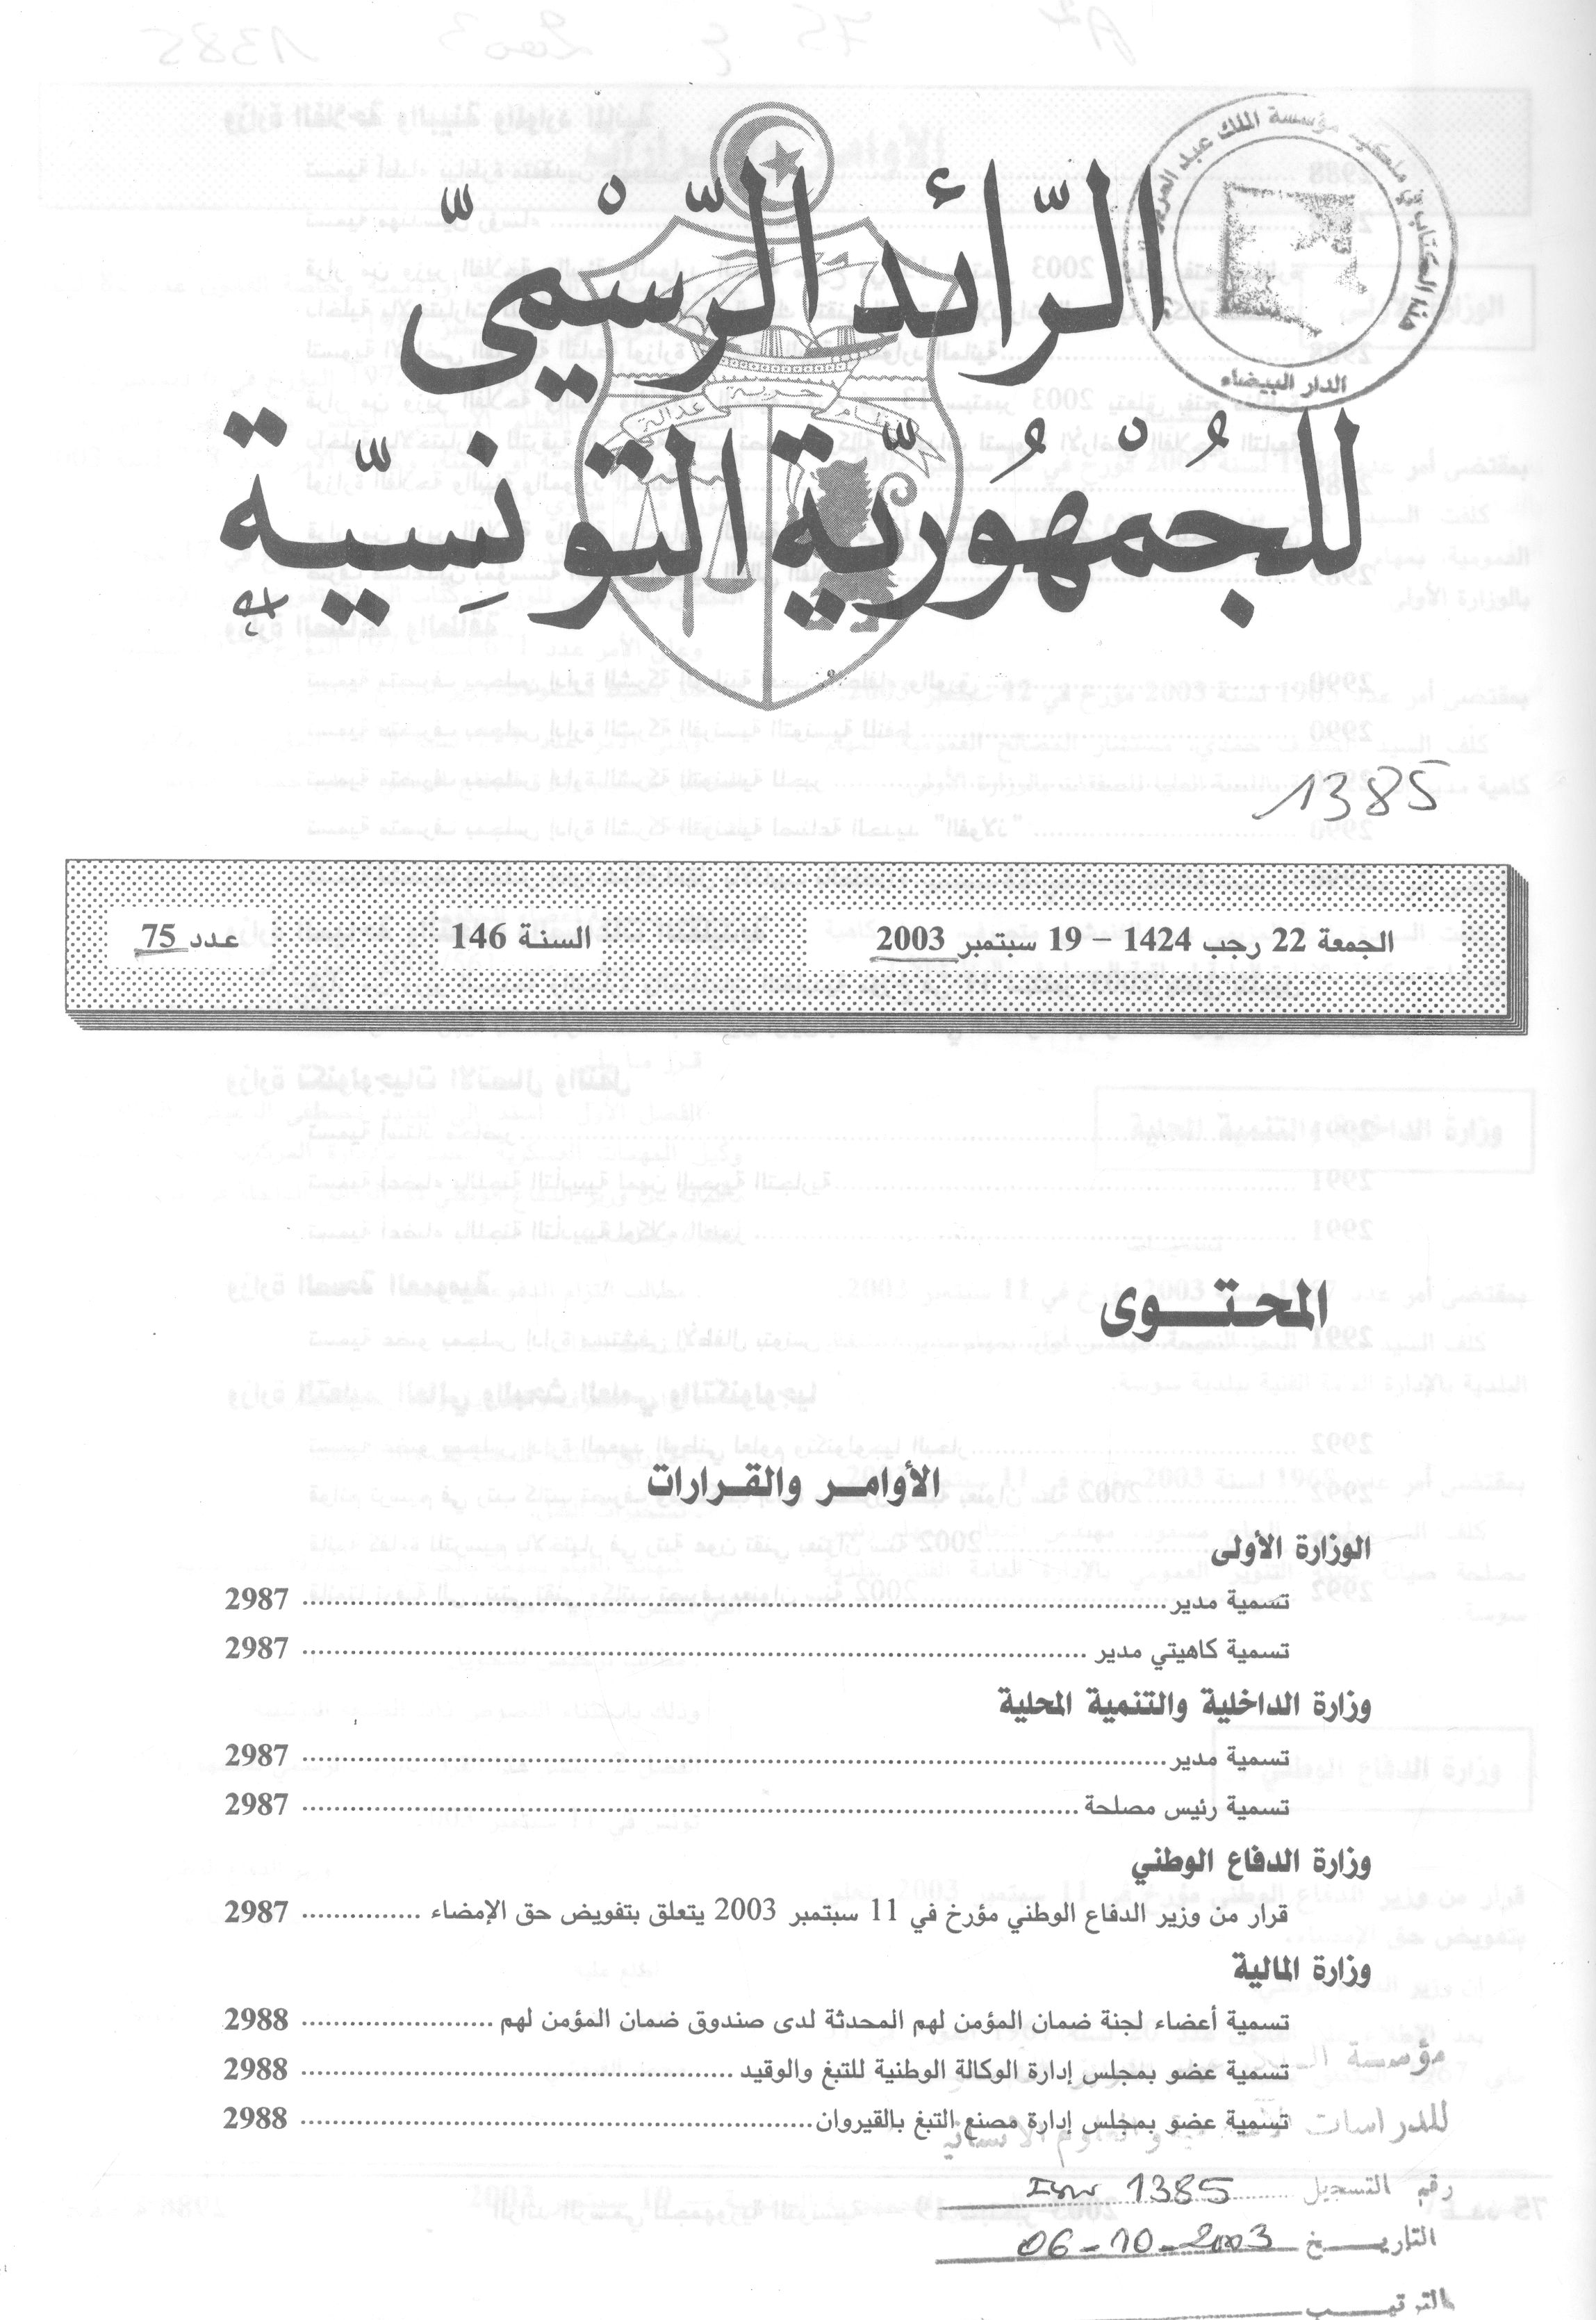 الرّائد الرّسْميّ
للجُمْهُوريّة التّونِسيّة
نظام حرية عدالة
مؤسسة الملك عبد العزيز
الدار البيضاء
1385
الجمعة 22 رجب 1424 – 19 سبتمبر 2003 السنة 146 عدد 75
المحتوى
الأوامر والقرارات
الوزارة الأولى
تسمية مدير 2987
تسمية كاهيتي مدير 2987
وزارة الداخلية والتنمية المحلية
تسمية مدير 2987
تسمية رئيس مصلحة 2987
وزارة الدفاع الوطني
قرار من وزير الدفاع الوطني مؤرخ في 11 سبتمبر 2003 يتعلق بتفويض حق الإمضاء 2987
وزارة المالية
تسمية أعضاء لجنة ضمان المؤمن لهم المحدثة لدى صندوق ضمان المؤمن لهم 2988
تسمية عضو بمجلس إدارة الوكالة الوطنية للتبغ والوقيد 2988
تسمية عضو بمجلس إدارة مصنع التبغ بالقيروان 2988
مؤسسة
للدراسات
رقم التسجيل 1385
التاريخ 06-10-2003
الترتيب